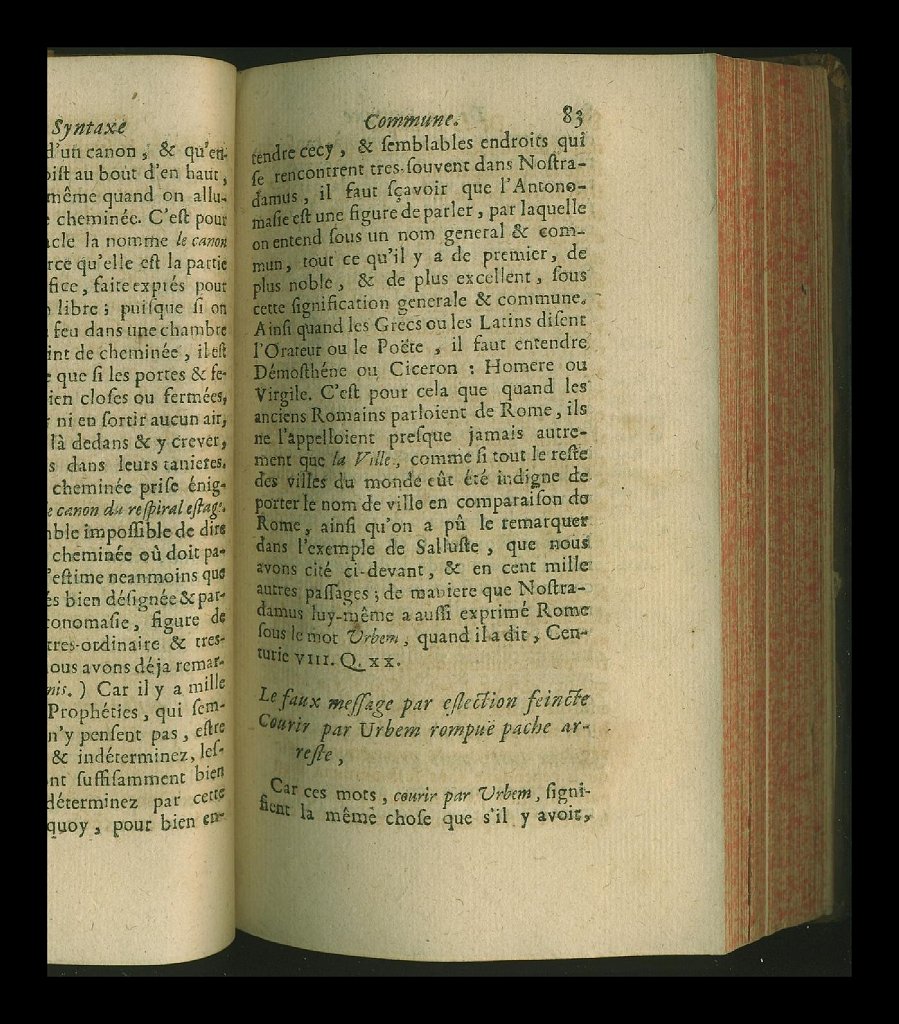 Syntaxe
d'un canon, & qu'en-
oist au bout d'en haut,
même quand on allu-
cheminée. C'est pour
acle la nomme le canon
rce qu'elle est la partie
fice, faite exprés pour
libre ; puisque si on
feu dans une chambre
int de cheminée, il est
que si les portes & fe-
ien closes ou fermées,
ni en sortir aucun air,
là dedans & y crever,
s dans leurs tanieres.
cheminée prise énig-
e canon du respiral estage.
ble impossible de dire
cheminée où doit pa-
'estime neanmoins que
és bien désignée & par-
onomasie, figure de
tres-ordinaire & tres-
ous avons déja remar-
nis.) Car il y a mille
Prophéties, qui sem-
n'y pensent pas, estre
& indéterminez, les-
nt suffisamment bien
déterminez par cette
quoy, pour bien en-
Commune. 83
tendre cecy, & semblables endroits qui
se rencontrent tres-souvent dans Nostra-
damus, il faut sçavoir que l'Antono-
masie est une figure de parler, par laquelle
on entend sous un nom general & com-
mun, tout ce qu'il y a de premier, de
plus noble, & de plus excellent, sous
cette signification generale & commune.
Ainsi quand les Grecs ou les Latins disent
l'Orateur ou le Poëte, il faut entendre
Démosthéne ou Ciceron : Homere ou
Virgile. C'est pour cela que quand les
anciens Romains parloient de Rome, ils
ne l'appelloient presque jamais autre-
ment que la Ville, comme si tout le reste
des villes du monde eût été indigne de
porter le nom de ville en comparaison de
Rome, ainsi qu'on a pû le remarquer
dans l'exemple de Salluste, que nous
avons cité ci-devant, & en cent mille
autres passages ; de maniere que Nostra-
damus luy-même a aussi exprimé Rome
sous le mot Urbem, quand il a dit, Cen-
turie VIII. Q. XX.
Le faux message par eslection feincte
Courir par Urbem rompuë pache ar-
reste,
Car ces mots, courir par Urbem, signi-
fient la même chose que s'il y avoit,